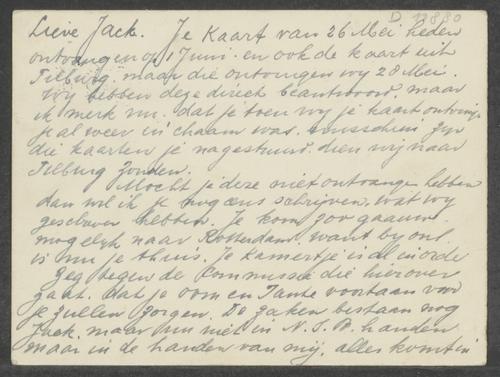 D 12830
Lieve Jack. Je Kaart van 26 Mei heden
ontvangen op 1 Juni. en ook de kaart uit
Tilburg. maar die ontvingen wij 28 Mei.
Wij hebben deze direct beantwoord. maar
ik merk nu. dat je toen wij je kaart ontvinge
je al weer in Chaam was. misschien zijn
die kaarten je nagestuurd. dien wij naar
Tilburg zonden.
Mocht je deze niet ontvangen hebben
dan wil ik je nog eens schrijven. wat wij
geschreven hebben. Je kom zoo gauw
mogelijk naar Rotterdam. want bij ons
is nu je thuis. Je kamertje is al in orde
Zeg tegen de Commissie die hierover
gaat. dat je oom en Tante voortaan voor
je zullen zorgen. De zaken bestaan nog
Jack. maar nu niet in N.S.B. handen
maar in de handen van mij. alles komt in